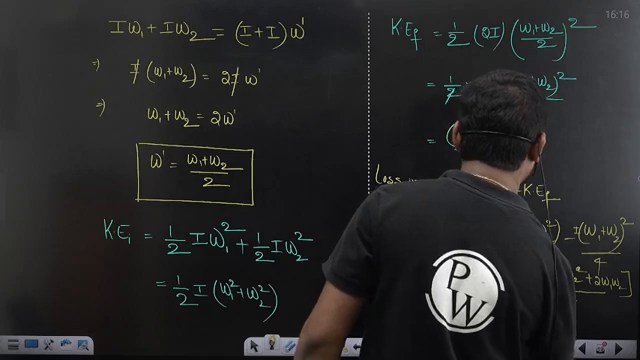 16:16
Iω₁ + Iω₂ = (I+I)ω'
⇒ I(ω₁+ω₂) = 2Iω'
⇒ ω₁+ω₂ = 2ω'
ω' = (ω₁+ω₂)/2
K·Eᵢ = 1/2 Iω₁² + 1/2 Iω₂²
= 1/2 I (ω₁²+ω₂²)
K·E_f = 1/2 (2I) ((ω₁+ω₂)/2)²
= 1/2
ω₂)²
= (
Loss
K·E_f
²) − I(ω₁+ω₂)²/4
² + 2ω₁ω₂]
PW